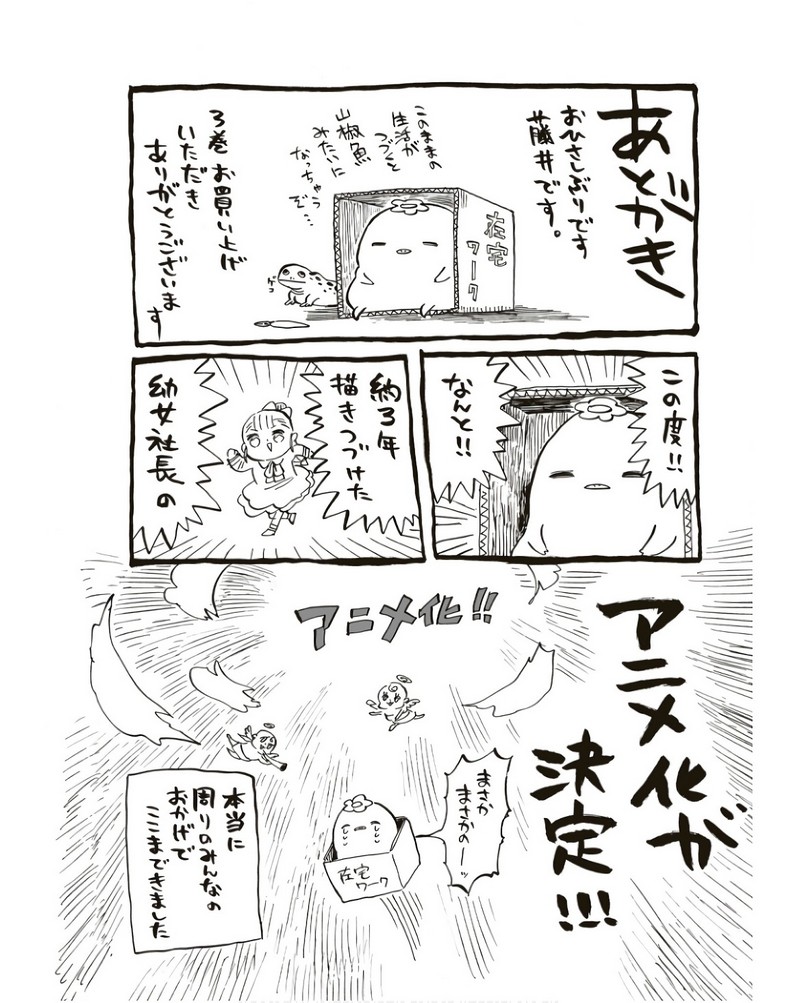 あとがき
おひさしぶりです
藤井です。
このままの
生活が
つづくと
山椒魚
みたいに
なっちゃう
ぞ…
在宅
ワーク
ゲコ
3巻 お買い上げ
いただき
ありがとうございま
す
この度!!
なんと!!
約3年
描きつづけた
幼女社長の
アニメ化が
決定!!!
アニメ化!!
まさか
まさかのーッ
在宅
ワーク
本当に
周りのみんなの
おかげで
ここまできました